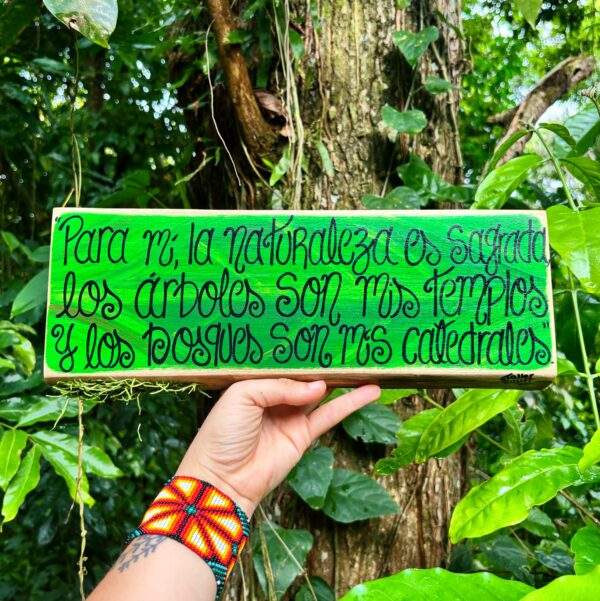 "Para mi, la naturaleza es sagrada,
los árboles son mis templos
y los bosques son mis catedrales".